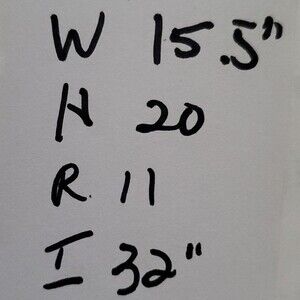 W 15.5"
H 20
R. 11
I 32"